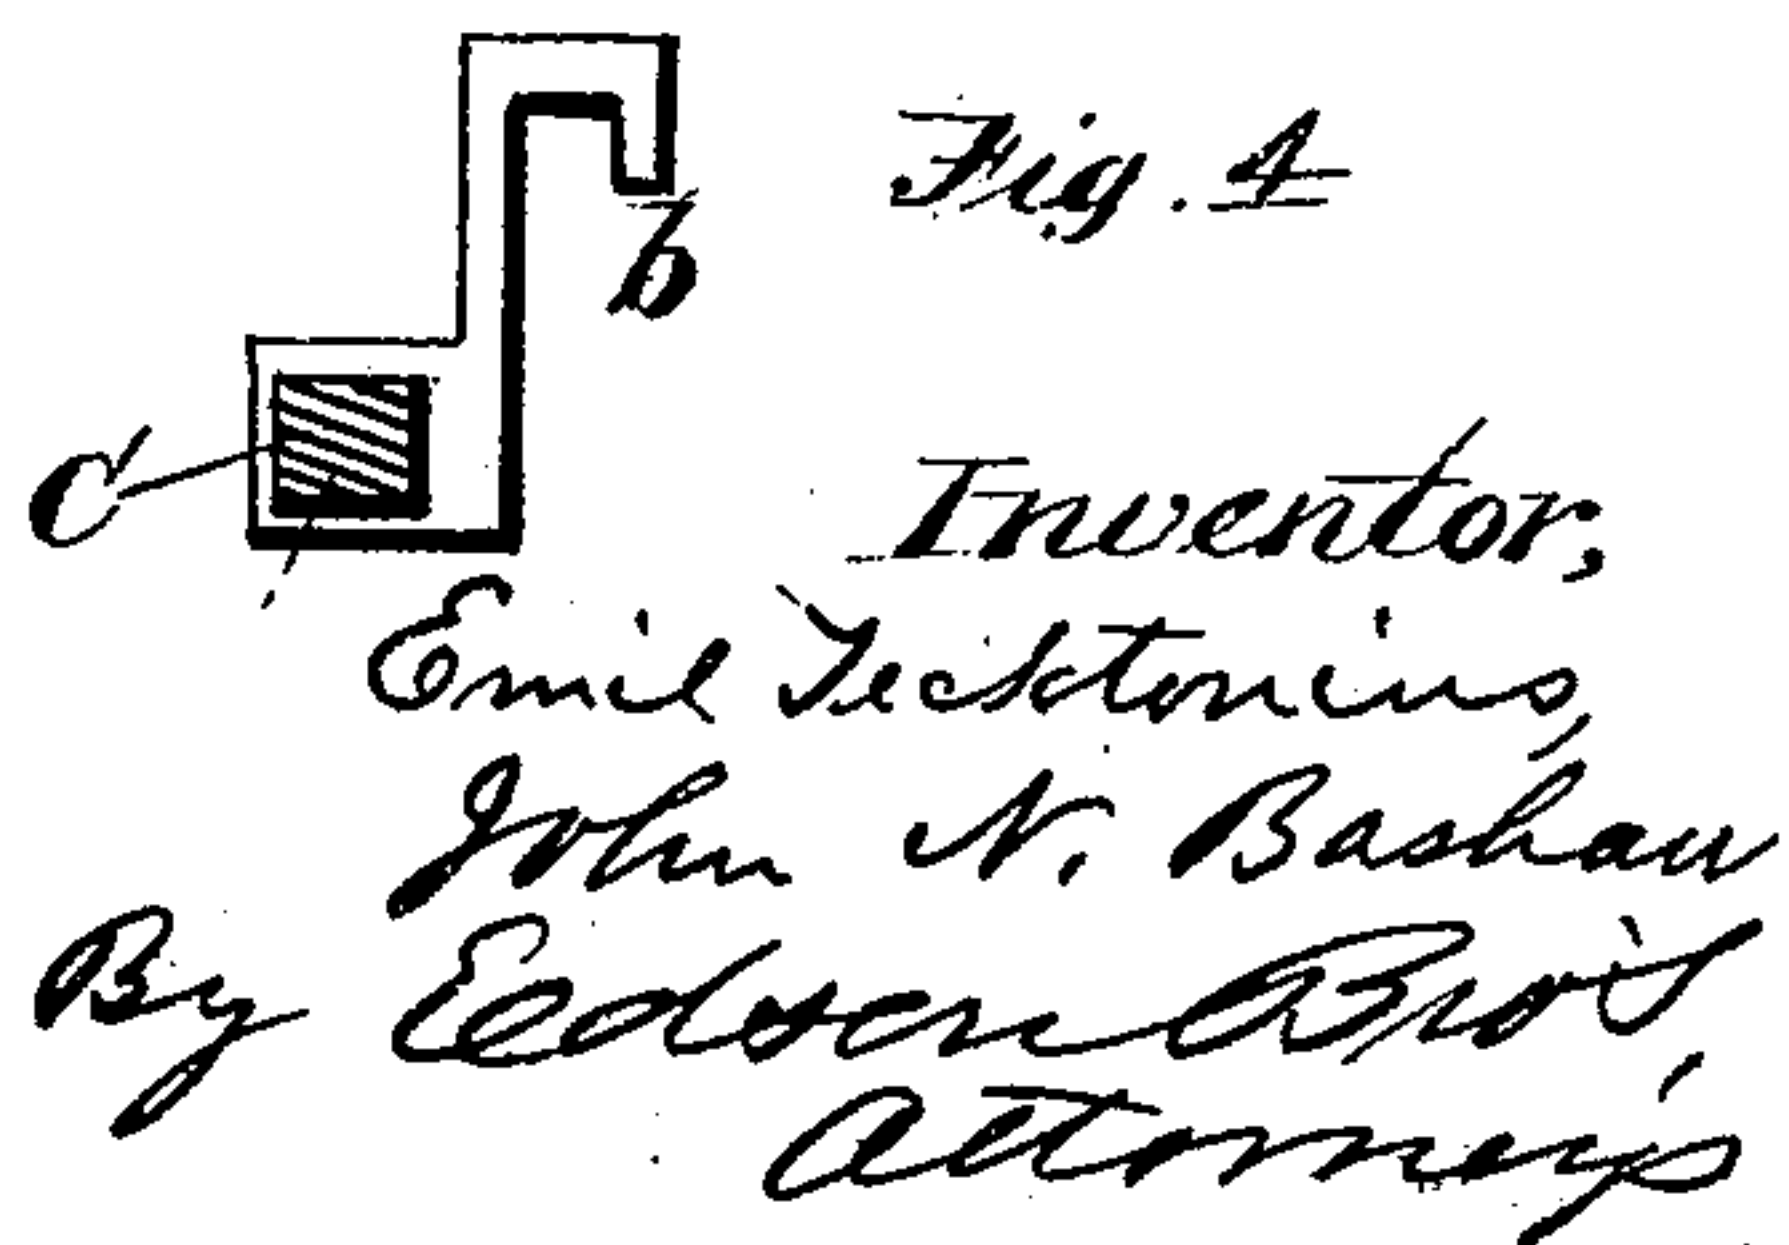 Fig. 4
b
C
Inventor,
Emil Tecktonius,
John N. Bashaw
By Edson Bro's,
Attorneys